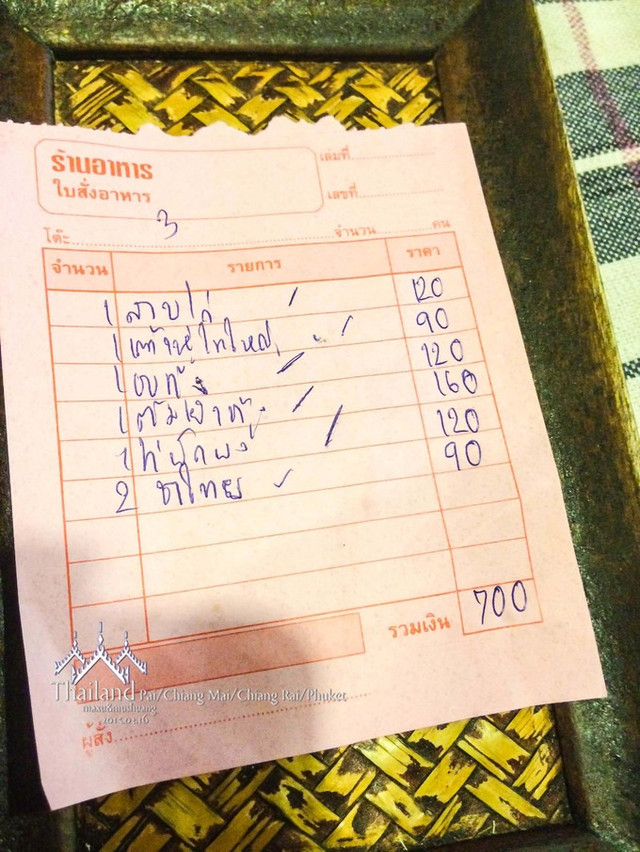 ร้านอาหาร
ใบสั่งอาหาร
เล่มที่
เลขที่
โต๊ะ 3 จำนวน คน
จำนวน รายการ ราคา
1 ลาบไก่ 120
1 90
1 120
1 ต้มยำกุ้ง 160
1 120
2 ชาไทย 90
รวมเงิน 700
Thailand Pai/Chiang Mai/Chiang Rai/Phuket
ผู้สั่ง